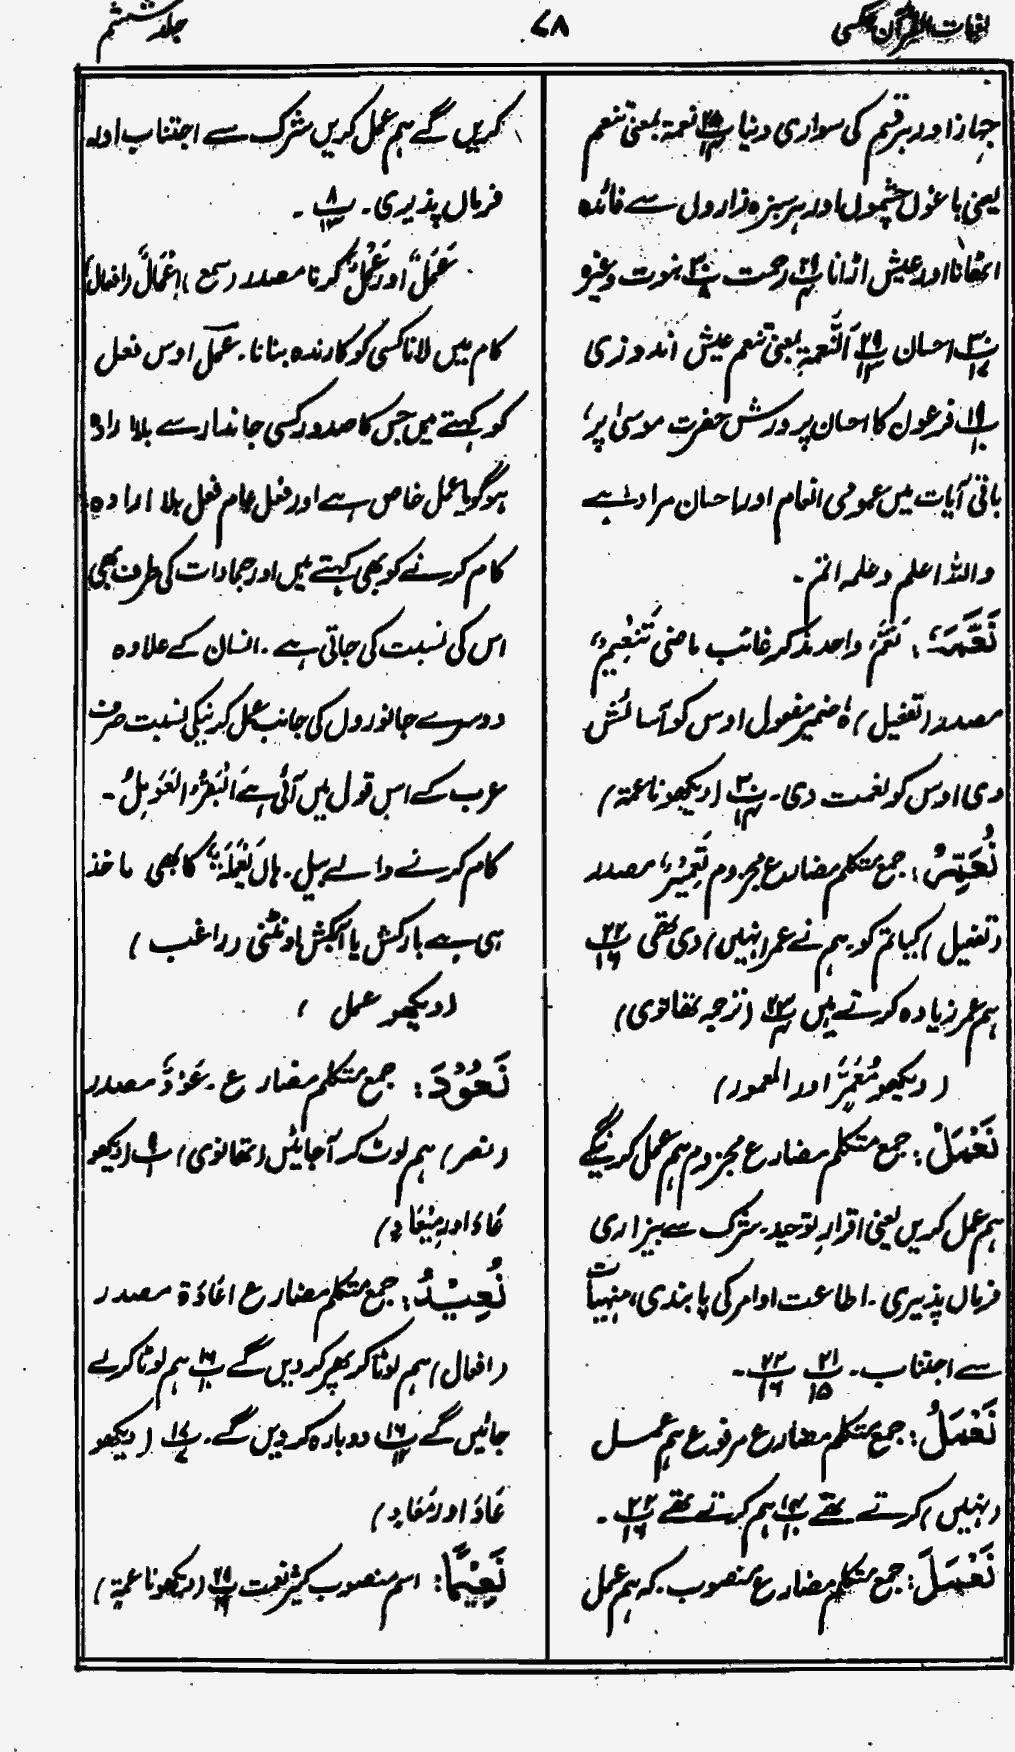 لغات القرآن عکسی
۷۸
جلد ششم
جہاز اور ہر قسم کی سواری دنیا پ۲۵/۱۴ نعمۃ بمعنی تنعم
یعنی باغوں چشموں اور ہر سبزہ زاروں سے فائدہ
اٹھانا اور عیش اڑانا پ۲۹/۴ رحمت پ۳۰/۸ نبوت وغیرہ
پ۳۰/۱۷ احسان پ۲۹/۱۳ اَلنَّعمۃِ بمعنی تنعم عیش اندوزی
پ۱۹/۱۰ فرعون کا احسان پرورش حضرت موسیٰ پر،
باقی آیات میں عمومی انعام اور احسان مراد ہے
واللہ اعلم وعلمہ اتم ۔
نَعَّمَہٗ: نَعَّمَ واحد مذکر غائب ماضی تَنْعِیمٌ،
مصدر (تفعیل) ہٗ ضمیر مفعول اوس کو آسائش
دی اوس کو نعمت دی۔ پ۳۰/۱۴ (دیکھو ناعمۃ)
نُعَمِّرْ: جمع متکلم مضارع مجزوم تَعْمِیْرٌ، مصدر
(تفعیل) کیا تم کو ہم نے عمر (نہیں) دی تھی پ۲۲/۱۶
ہم عمر زیادہ کرتے ہیں پ۲۳/۴ (ترجمہ تھانوی)
(دیکھو مُعَمَّرٌ اور المعمور)
نَعْمَلْ: جمع متکلم مضارع مجزوم ہم عمل کرینگے
ہم عمل کریں یعنی اقرارِ توحید۔ شرک سے بیزاری
فرماں پذیری ۔ اطاعت اوامر کی پابندی، منہیات
سے اجتناب ۔ پ۲۱/۱۵ پ۲۲/۱۶ ۔
نَعْمَلُ: جمع متکلم مضارع مرفوع ہم عمل
(نہیں) کرتے تھے پ۱۴/۱۰ ہم کرتے تھے پ۲۲/۱۶ ۔
نَعْمَلَ: جمع متکلم مضارع منصوب ۔ کہ ہم عمل
کریں گے ہم عمل کریں شرک سے اجتناب اور
فرماں پذیری ۔ پ۸/۱۳ ۔
عَمَلٌ اور عَمْلٌ کرنا مصدر (سمع) اِعْمَالٌ (افعال)
کام میں لانا کسی کو کارندہ بنانا ۔ عمل اوس فعل
کو کہتے ہیں جس کا صدور کسی جاندار سے بلا ارادہ
ہو گویا عمل خاص ہے اور فعل عام فعل بلا ارادہ
کام کرنے کو بھی کہتے ہیں اور جمادات کی طرف بھی
اس کی نسبت کی جاتی ہے ۔ انسان کے علاوہ
دوسرے جانوروں کی جانب عمل کرنیکی نسبت صرف
عرب کے اس قول میں آئی ہے اَلْبَقَرُ الْعَوَامِلُ ۔
کام کرنے والے بیل ۔ ہاں یَعْمَلَۃٌ، کا بھی ماخذ
ہی ہے بارکش یا آبکش اونٹنی (راغب)
(دیکھو عمل)
نَعُوْدَ: جمع متکلم مضارع ۔ عَوْدٌ مصدر
(نصر) ہم لوٹ کر آ جائیں (تھانوی) پ۹/۱ (دیکھو
عَادَ اور مِیْعَاد)
نُعِیْدُ: جمع متکلم مضارع اعَادَۃ مصدر
(افعال) ہم لوٹا کر پھر کر دیں گے پ۱۶/۱۰ ہم لوٹا کر لے
جائیں گے پ۱۶/۱۲ دوبارہ کر دیں گے ۔ پ۱۷/۷ (دیکھو
عَادَ اور مَعَاد)
نَعِیْمًا: اسم منصوب کثیر نعمت پ۲۹/۱۹ (دیکھو ناعمۃ)